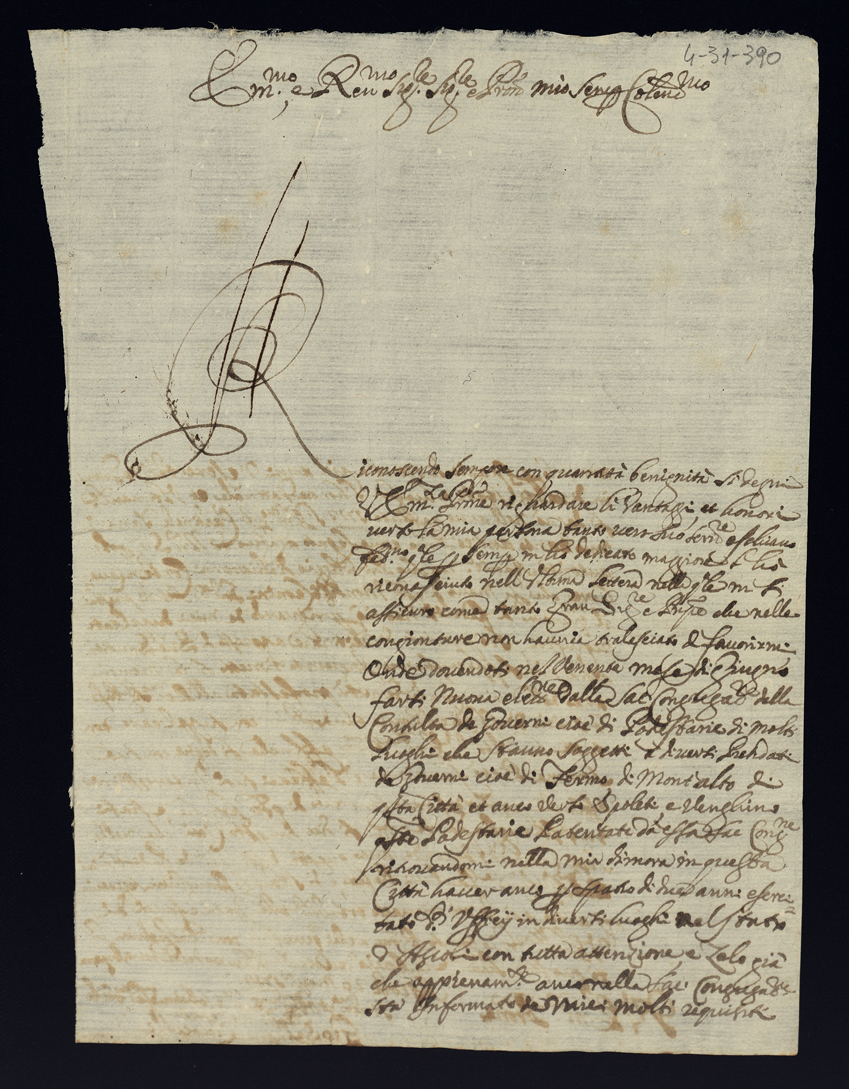 4-31-390
Em.mo e Rev.mo Sig.re Sig.re e Pron mio Semp Colend.mo
Riconoscendo sempre con quanta benignità si degni
V. Em.za riguardare li Vantaggi, et honori
verso la mia persona tanto vero suo ser.re
sempre m'hà dedicato maggiore
nell'ultima lettera nella q.le m
assicura come tanto Gran e che nelle
congionture non havria tralasciato di favorirmi
Onde dovendosi nel Venente mese di Giugno
farsi Nuova elec.ne dalla Sac Congregat.e della
Consulta de Governi cioè di Podestarie di molti
luoghi che stanno soggetti à diversi
de Governi cioè di Fermo di Mont'alto di
q.sta Città et anco Spoleti e venghino
q.ste Podestarie Patentate da essa Sac Cong.ne
ritrovandomi nella mia dimora in questa
Città haver anco p spatio di due anni eserci=
tato Uffitij in diversi luoghi nel Stato
d'Ascoli con tutta attenzione e Zelo già
che appienam.te anco alla Sac Congregat.e
Informato de miei molti requisiti